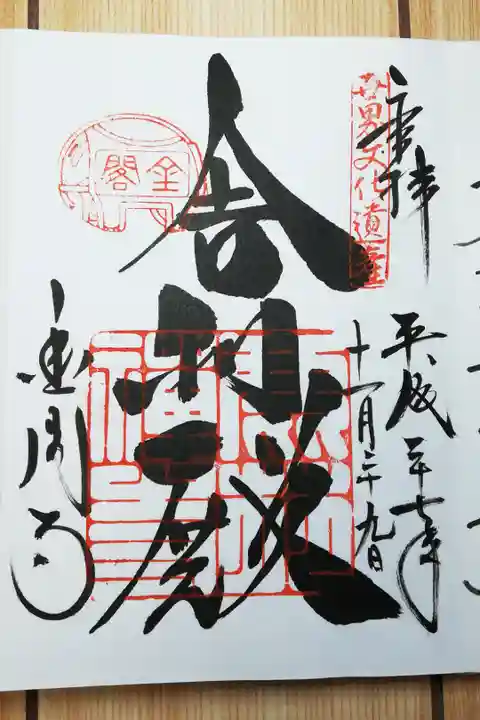 奉拝
世界文化遺産
平成二十七年
十一月二十九日
舎利殿
金閣
金閣寺